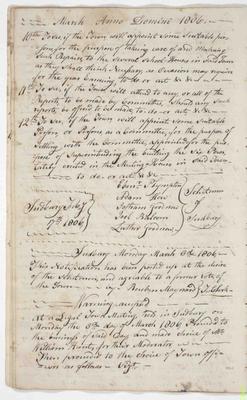 March Anno Domini 1806.
10th To see if the Town will appoint some Suitable per
son for the purpose of taking care of and making
such Repairs to the several School Houses in said Town
as they shall think Necessary as Occasion may require
for the year Ensuing to do or act &c
11th To see if the Town will attend to any, or all of the
Reports to be made by committees, should any such
reports be offered to be made to do or act &c
12th To see if the Town will appoint some Suitable
Person or Persons as a Committee, for the purpose of
Settling with the Committee, appointed for the pur
pose of Superintending the building the
lately erected in the Meeting House in said Town
to do or act &c
Sudbury
7th 1806
Ebenr Plympton
Adam How
Jotham Goodnow
Joel Balcom
Luther Goodnow
Selectmen
of
Sudbury
Sudbury Monday March 3th 1806
This Notification has been posted up at the doors
of the Selectmen, and agreeable to a former Vote of
the Town by Reuben Maynard T. Clerk
Warning accepted
At a Legal Town Meeting held in Sudbury on
Monday the 3th day of March 1806, Proceeded to
the business of said Day and made choice of Mr.
William Hunt, for their Moderator
Then proceeded to the Choice of Town offi
cers as follows Vizt.